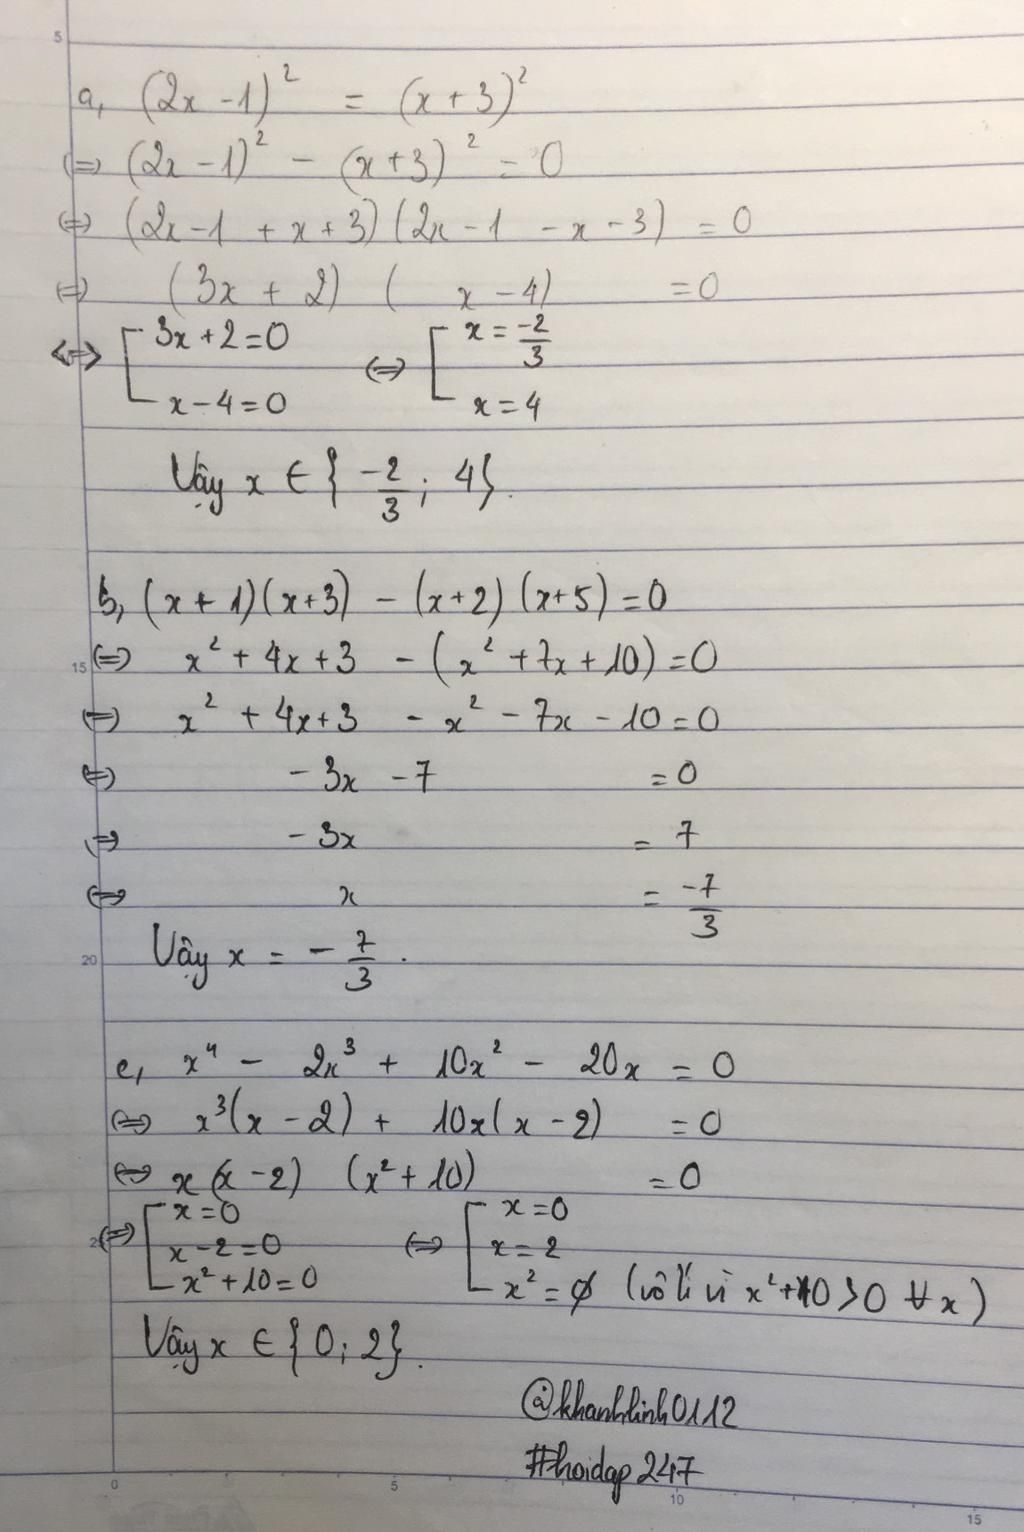 5
a, (2x - 1)² = (x + 3)²
⇔ (2x - 1)² - (x + 3)² = 0
⇔ (2x - 1 + x + 3)(2x - 1 - x - 3) = 0
⇔ (3x + 2) ( x - 4) = 0
⇔ [ 3x + 2 = 0 ⇔ [ x = -2/3
x - 4 = 0 x = 4
Vậy x ∈ { -2/3 ; 4}.
b, (x + 1)(x + 3) - (x + 2)(x + 5) = 0
15 ⇔ x² + 4x + 3 - (x² + 7x + 10) = 0
⇔ x² + 4x + 3 - x² - 7x - 10 = 0
⇔ - 3x - 7 = 0
⇔ - 3x = 7
⇔ x = -7/3
20 Vậy x = - 7/3 .
c, x⁴ - 2x³ + 10x² - 20x = 0
⇔ x³(x - 2) + 10x(x - 2) = 0
⇔ x(x - 2) (x² + 10) = 0
⇔ [ x = 0 ⇔ [ x = 0
x - 2 = 0 x = 2
x² + 10 = 0 x² = ∅ (vô lí vì x² + 10 > 0 ∀x)
Vậy x ∈ {0; 2}.
@khanhlinh0112
#hoidap247
0 5 10 15